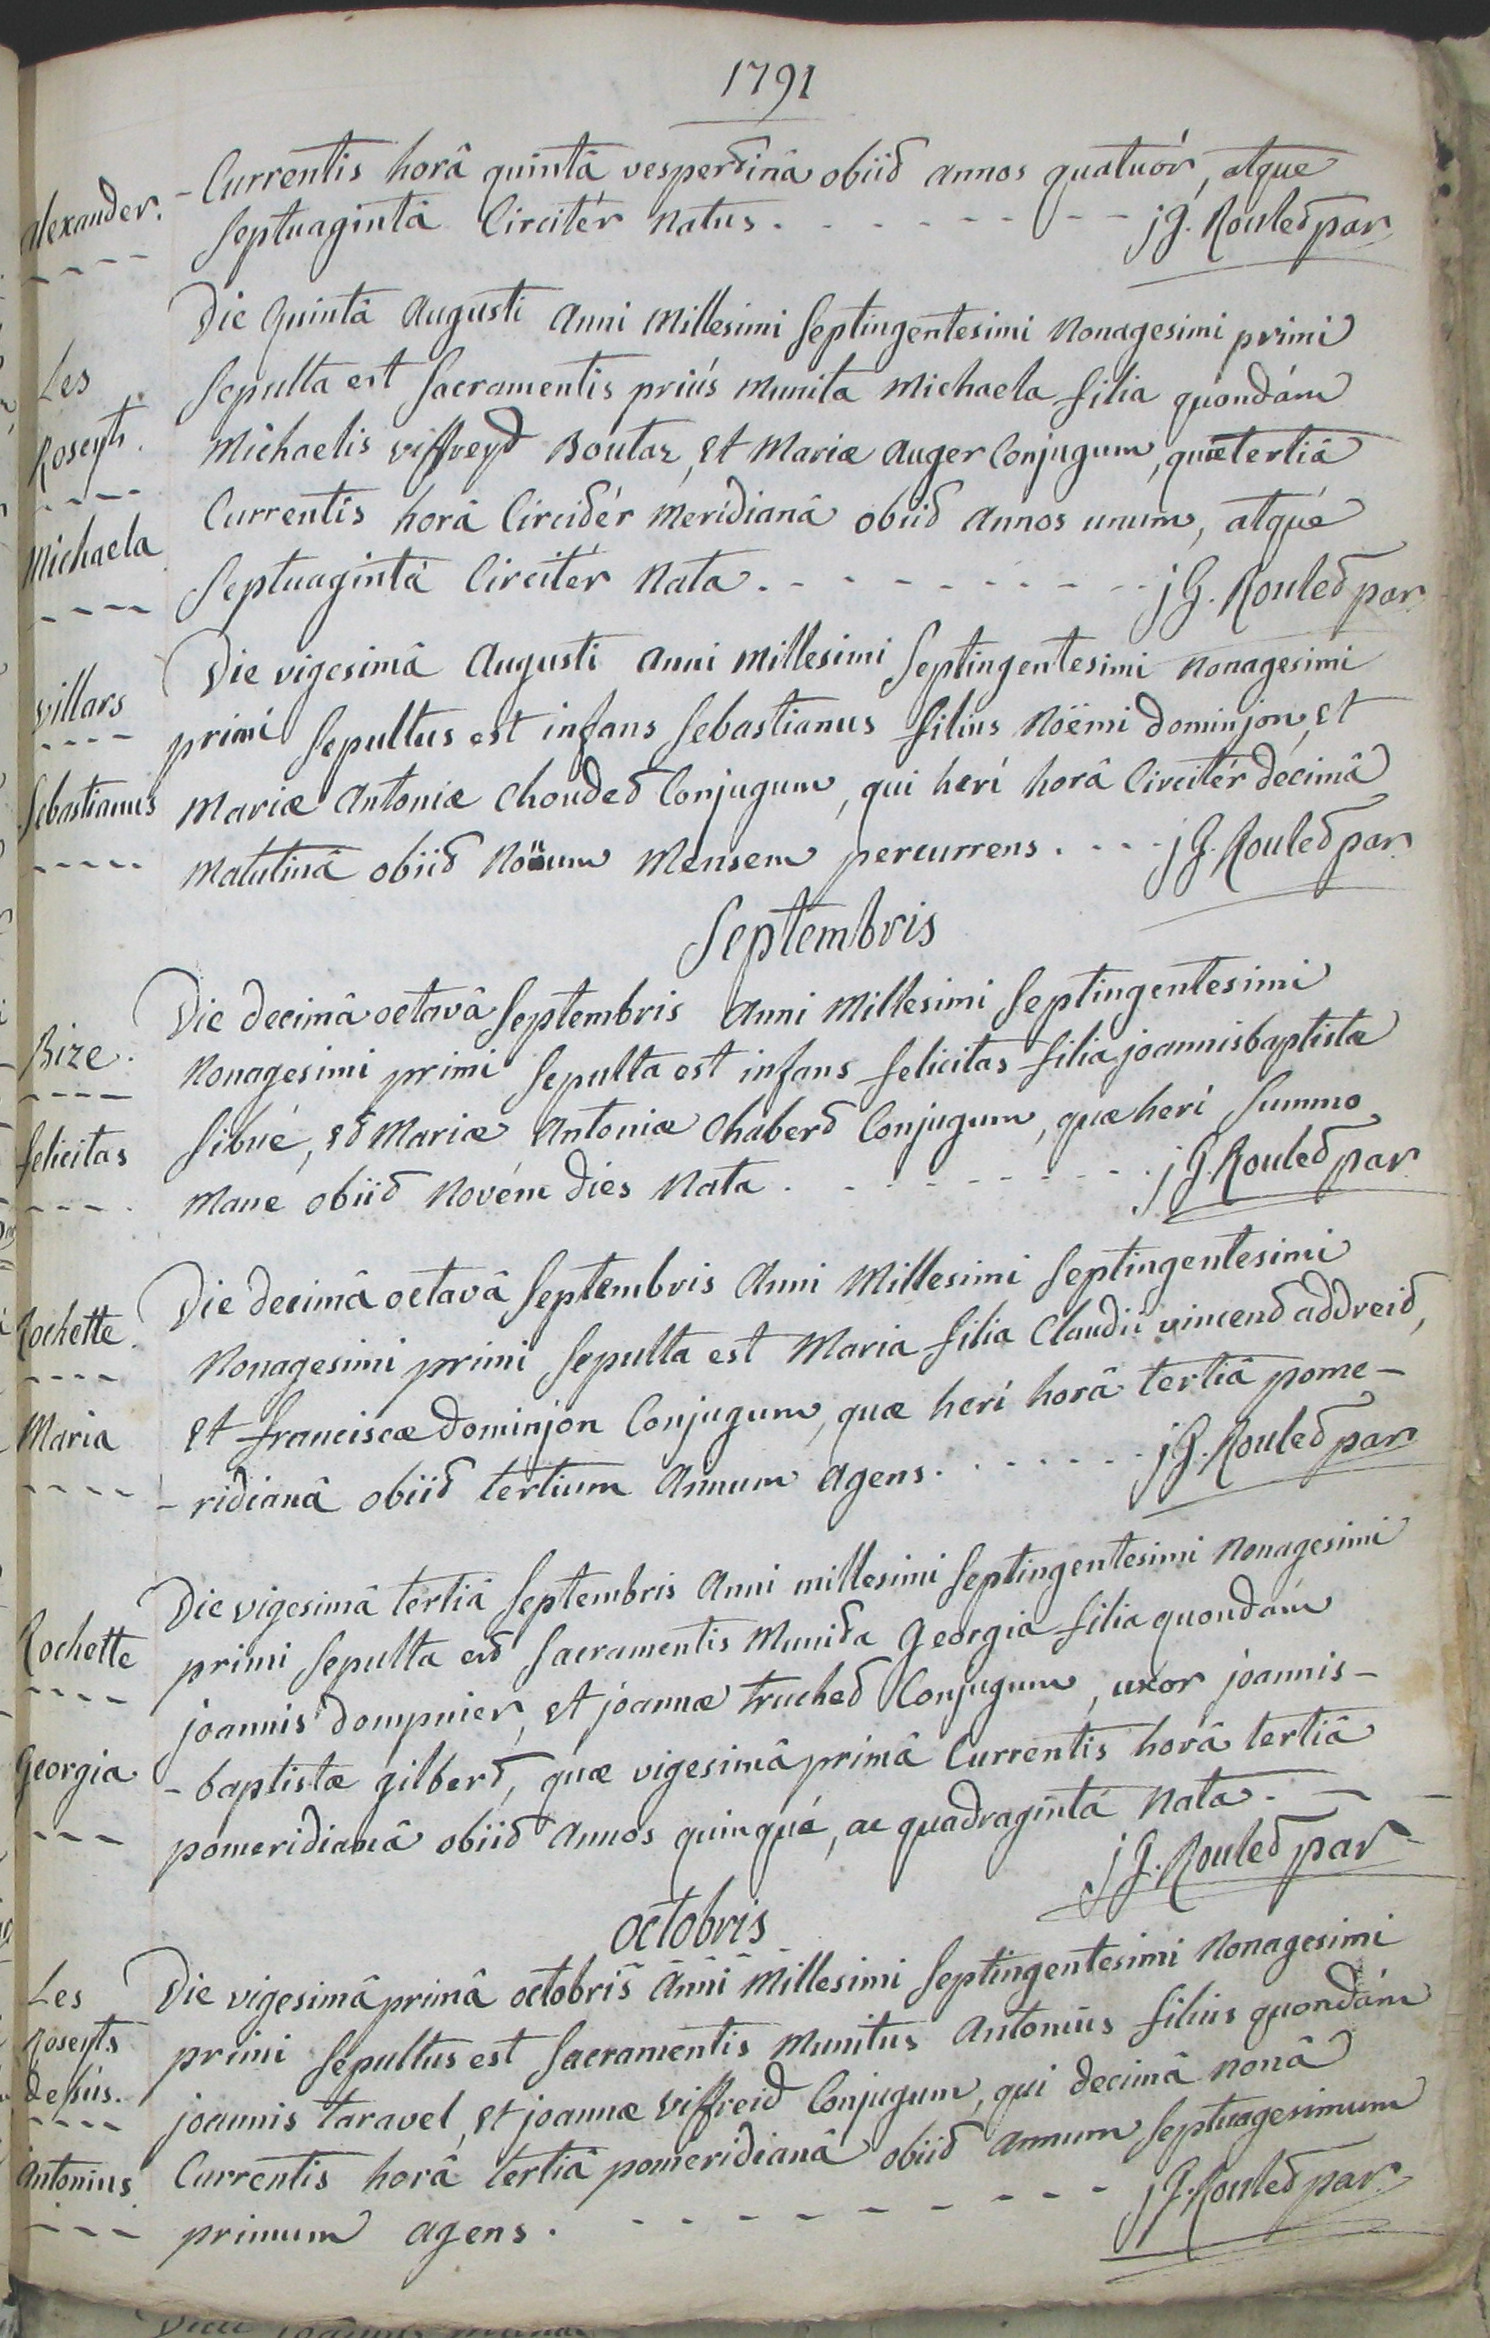 1791
alexander. - Currentis horâ quintâ vespertinâ obiit annos quatuór, atque
septuagintà Circitér natus. - - - - - - - - jG. Roulet par
Die quintâ Augusti anni millesimi septingentesimi nonagesimi primi
Les Roseyts. sepulta est sacramentis priùs munita michaela filia quóndám
michaelis viffreyd Boutaz, et mariæ auger Conjugum, quæ tertiâ
Michaela Currentis horâ Circitér meridianâ obiit annos unum, atqué
septuagintà Circitér nata. - - - - - - - - - jG. Roulet par
Die vigesimâ augusti anni millesimi septingentesimi nonagesimi
villars primi sepultus est infans sebastianus filius nöëmi dominjon, et
Sebastianus mariæ antoniæ choudet Conjugum, qui herì horâ Circitér decimâ
matutinâ obiit nöüum mensem percurrens. - - - jG. Roulet par
Septembris
Die decimâ octavâ septembris anni millesimi septingentesimi
Bize. nonagesimi primi sepulta est infans felicitas filia joannisbaptistæ
felicitas sibué, et mariæ antoniæ chabert Conjugum, quæ herì summo
mane obiit novém dies nata. - - - - - - - - jG. Roulet par
Die decimâ octavâ septembris anni millesimi septingentesimi
Rochette. nonagesimi primi sepulta est maria filia Claudii vincend addreit,
Maria et franciscæ dominjon Conjugum, quæ herì horâ tertiâ pome-
- ridianâ obiit tertium annum agens. - - - - - - jG. Roulet par
Die vigesimâ tertiâ septembris anni millesimi septingentesimi nonagesimi
Rochette primi sepulta est sacramentis munita georgia filia quondám
joannis dompnier, et joannæ truchet Conjugum, uxor joannis-
Georgia - baptistæ gilbert, quæ vigesimâ primâ Currentis horâ tertiâ
pomeridianâ obiit annos quinqué, ac quadragintà nata. - -
jG. Roulet par
octobris
Les Die vigesimâ primâ octobris anni millesimi septingentesimi nonagesimi
Roseyts primi sepultus est sacramentis munitus antonius filius quondám
dessùs. joannis taravel, et joannæ viffreid Conjugum, qui decimâ nonâ
antonius Currentis horâ tertiâ pomeridianâ obiit annum septuagesimum
primum agens. - - - - - - - - - jG. Roulet par